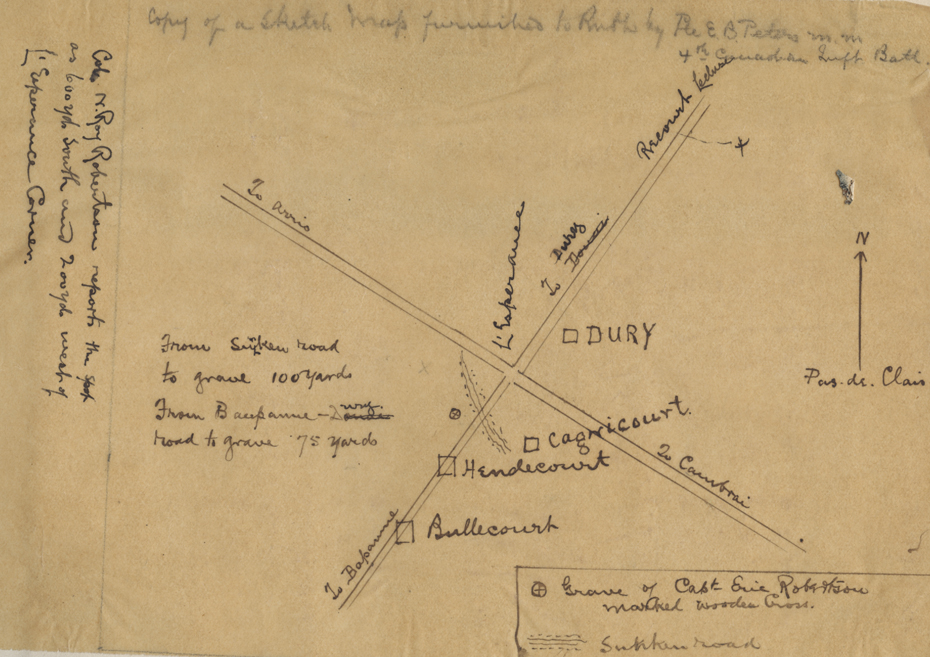 Copy of a Sketch Map furnished to Ruth by Pte E. B Peters m.m
4th Canadian Inft. Batt.
Corp. N. Roy Robertson reports the spot
as 600 yds South and 200 yds west of
L'Esperance Corner.
To arris
L'Esperance
To Dury
Recourt
N
Pas. de. Clais
DURY
From Sunken road
to grave 100 yards
From Baupaume - Dury
road to grave 75 yards
Cagnicourt.
Hendecourt
To Cambrai
Bullecourt
To Bapaume
Grave of Capt Eric Robertson
marked wooden Cross.
Sunken road